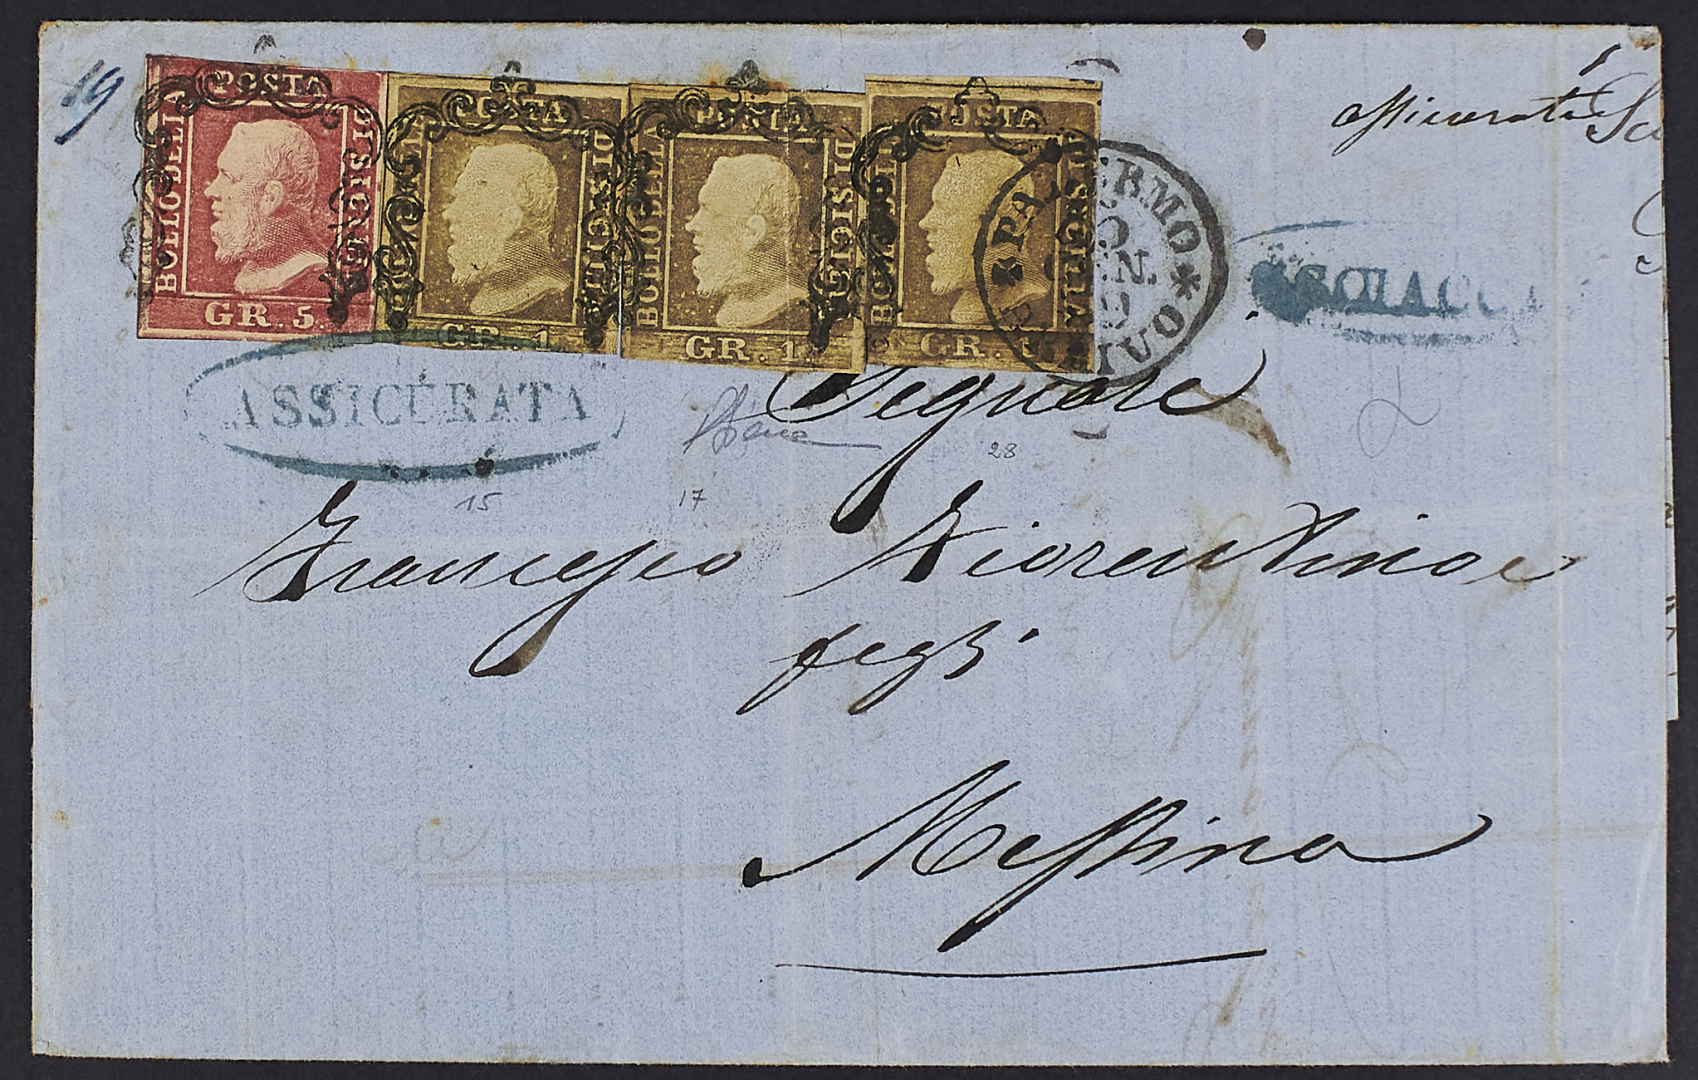 19
POSTA
BOLLO DELLA
DI SICILIA
GR. 5.
POSTA
DI SICILIA
GR. 1.
POSTA
BOLLO DELLA
DI SICILIA
GR. 1.
POSTA
DI SICILIA
GR. 1.
PALERMO
GEN.
ARRIVO
Assicurata
SCIACCA
ASSICURATA
15
17
28
2
Signore
Francesco Fiorentino e
figli
Messina